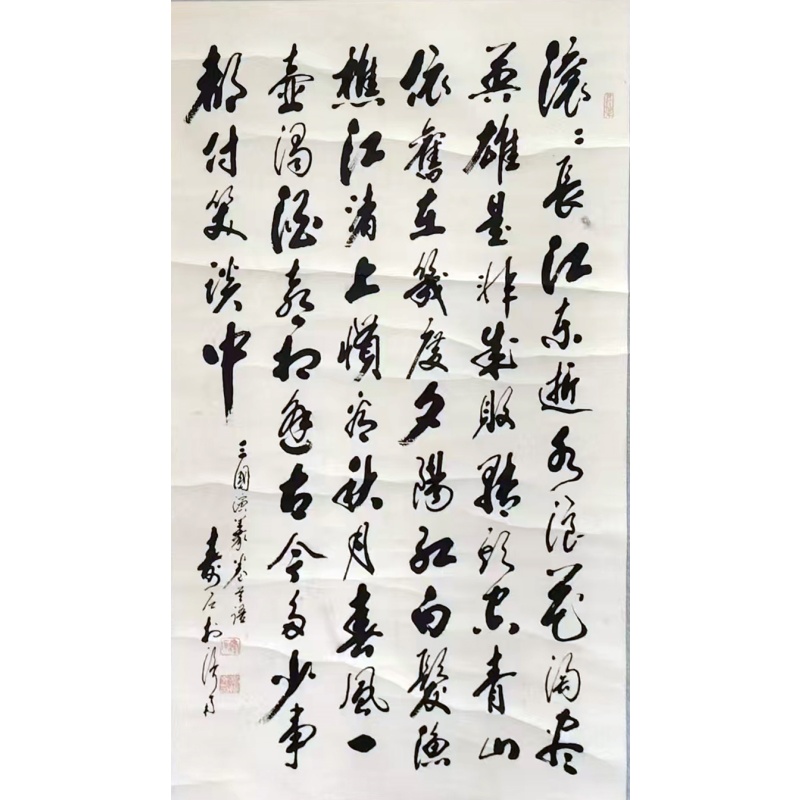 滚〻長江东逝水浪花淘尽
英雄是非成败轉头空青山
依舊在幾度夕陽红白髮渔
樵江渚上惯看秋月春風一
壶濁酒喜相逢古今多少事
都付笑谈中
三國演義卷首語